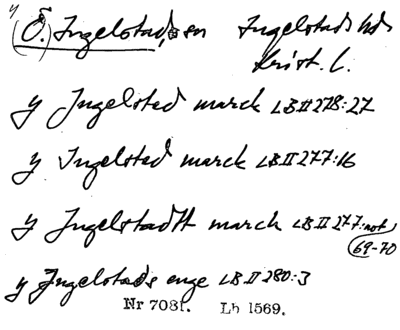 y
(Ö.) Ingelstad, sn Ingelstads hd
Krist. l.
y Jngelsted marck LB II 278:27
y Ingelsted marck LB II 277:16
y Jngelstadtt marck LB II 277: not
69-70
y Jngelstads enge LB II 280:3
Nr 7081. Lb 1569.